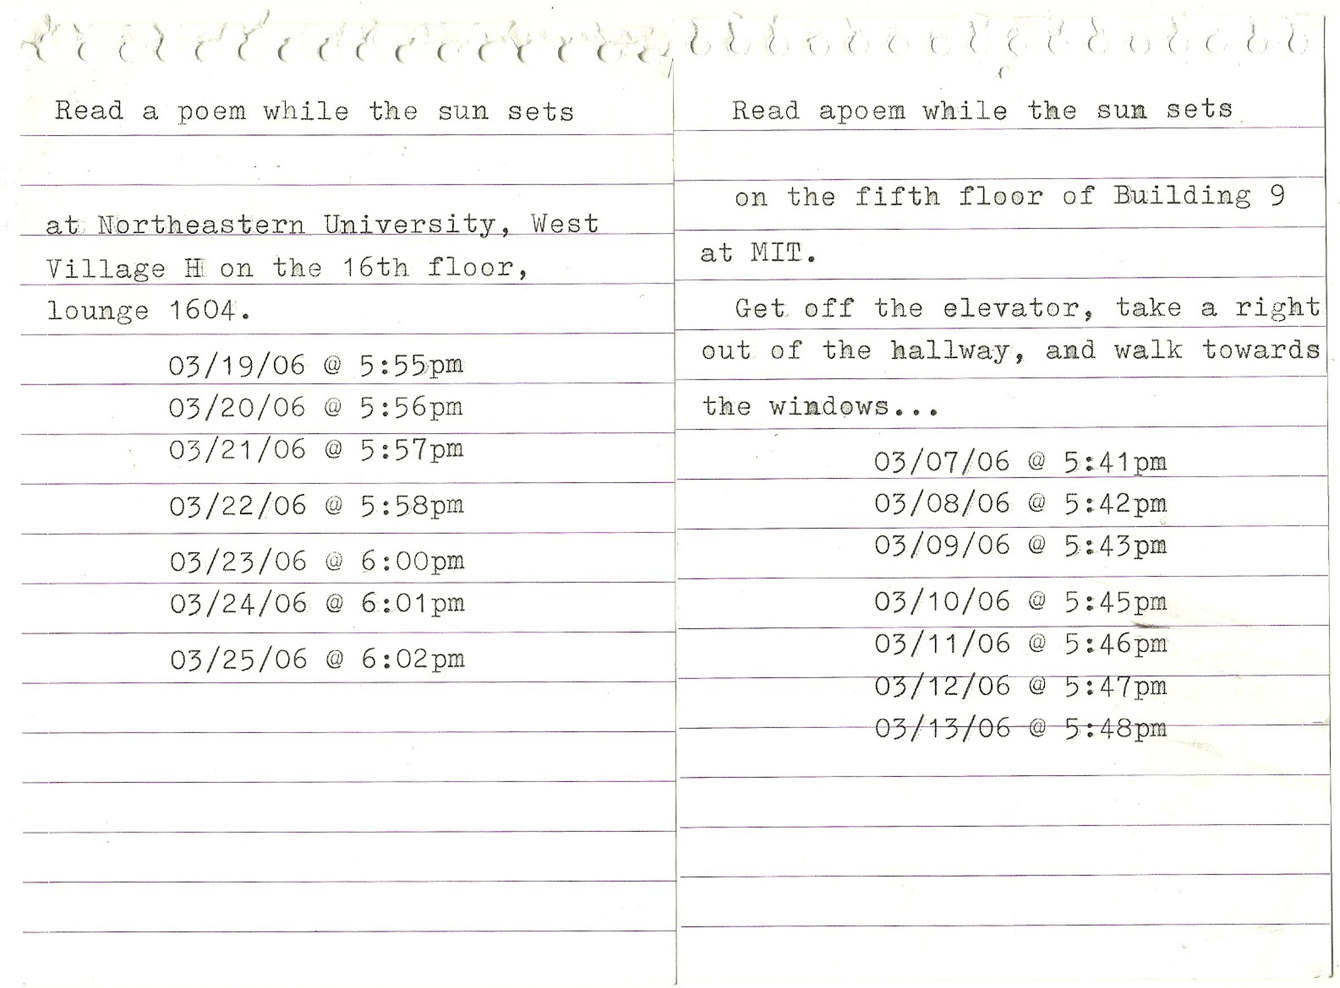 Read a poem while the sun sets
at Northeastern University, West
Village H on the 16th floor,
lounge 1604.
03/19/06 @ 5:55pm
03/20/06 @ 5:56pm
03/21/06 @ 5:57pm
03/22/06 @ 5:58pm
03/23/06 @ 6:00pm
03/24/06 @ 6:01pm
03/25/06 @ 6:02pm
Read apoem while the sun sets
on the fifth floor of Building 9
at MIT.
Get off the elevator, take a right
out of the hallway, and walk towards
the windows...
03/07/06 @ 5:41pm
03/08/06 @ 5:42pm
03/09/06 @ 5:43pm
03/10/06 @ 5:45pm
03/11/06 @ 5:46pm
03/12/06 @ 5:47pm
03/13/06 @ 5:48pm